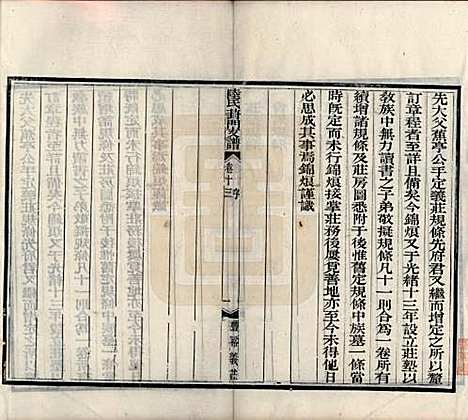 先大父蕉亭公手定義莊規條先府君又繼而增定之所以釐
訂章程者至詳且備矣今錦烺又于光緒十三年設立莊塾以
教族中無力讀書之子弟敬擬規條凡十一則合為一卷所有
續增諸規條及莊房圖悉附于後惟舊定規條中族墓一條當
時既定而未行錦烺接掌莊務後屢覓善地亦至今未得他日
必思成其事焉錦烺謹識
陸氏葑門支譜
卷十三
序
一
豐裕義莊